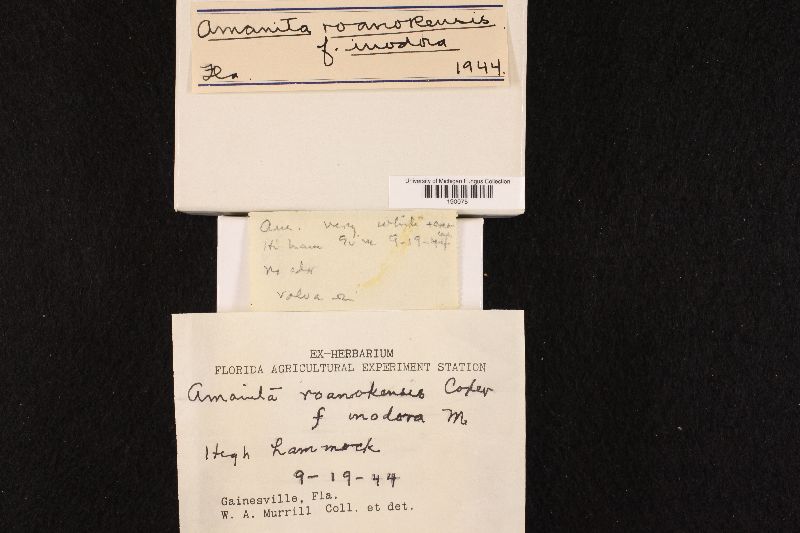 Amanita roanokensis
f. inodora
Fla. 1944.
University of Michigan Fungus Collection
Am. very white
9-19-44
no odor
volva
EX-HERBARIUM
FLORIDA AGRICULTURAL EXPERIMENT STATION
Amanita roanokensis Coker
f inodora M
High hammock
9-19-44
Gainesville, Fla.
W. A. Murrill Coll. et det.